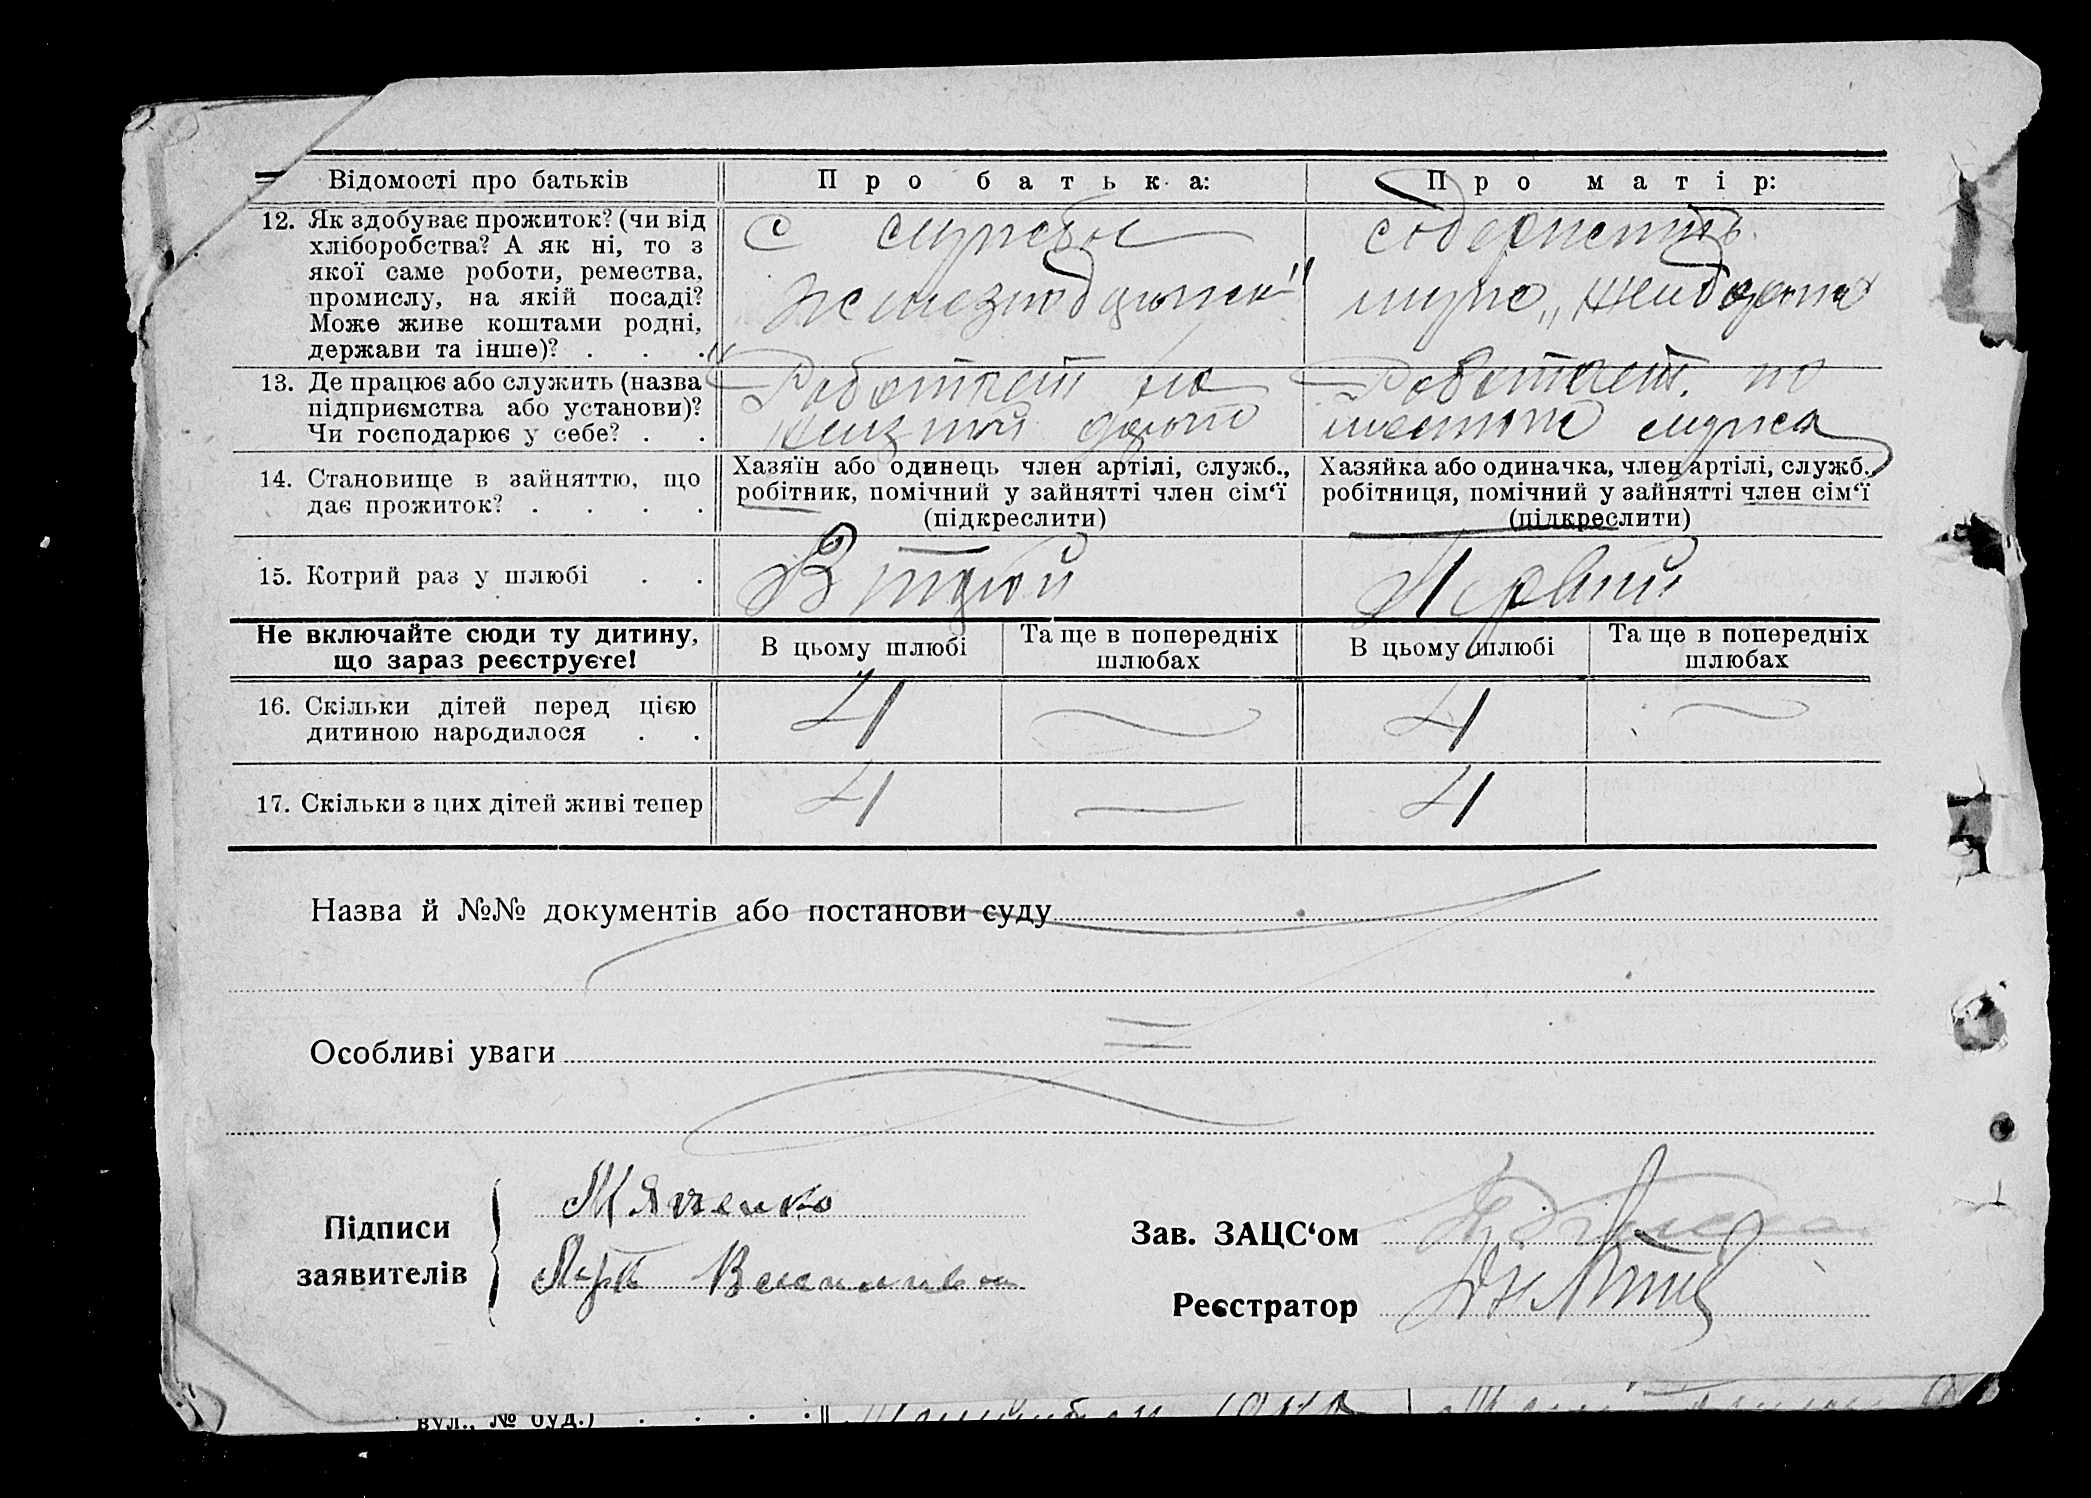 Відомості про батьків Про батька: Про матір:
12. Як здобуває прожиток? (чи від
хліборобства? А як ні, то з
якої саме роботи, ремества,
промислу, на якій посаді?
Може живе коштами родні,
держави та інше)? . . .
с службы
содержит
мужа
13. Де працює або служить (назва
підприємства або установи)?
Чи господарює у себе? . .
Работает на
Работает по
мужа
14. Становище в зайняттю, що
дає прожиток? . . . .
Хазяїн або одинець член артілі, служб.,
робітник, помічний у зайнятті член сім‘ї
(підкреслити)
Хазяйка або одиначка, член артілі, служб.,
робітниця, помічний у зайнятті член сім‘ї
(підкреслити)
15. Котрий раз у шлюбі . . Второй Первый
Не включайте сюди ту дитину,
що зараз реєструєте!
В цьому шлюбі Та ще в попередніх
шлюбах
В цьому шлюбі Та ще в попередніх
шлюбах
16. Скільки дітей перед цією
дитиною народилося . .
4 4
17. Скільки з цих дітей живі тепер 4 4
Назва й №№ документів або постанови суду
Особливі уваги
Підписи
заявителів
Зав. ЗАЦС‘ом
Реєстратор
вул., № буд.) . . . .